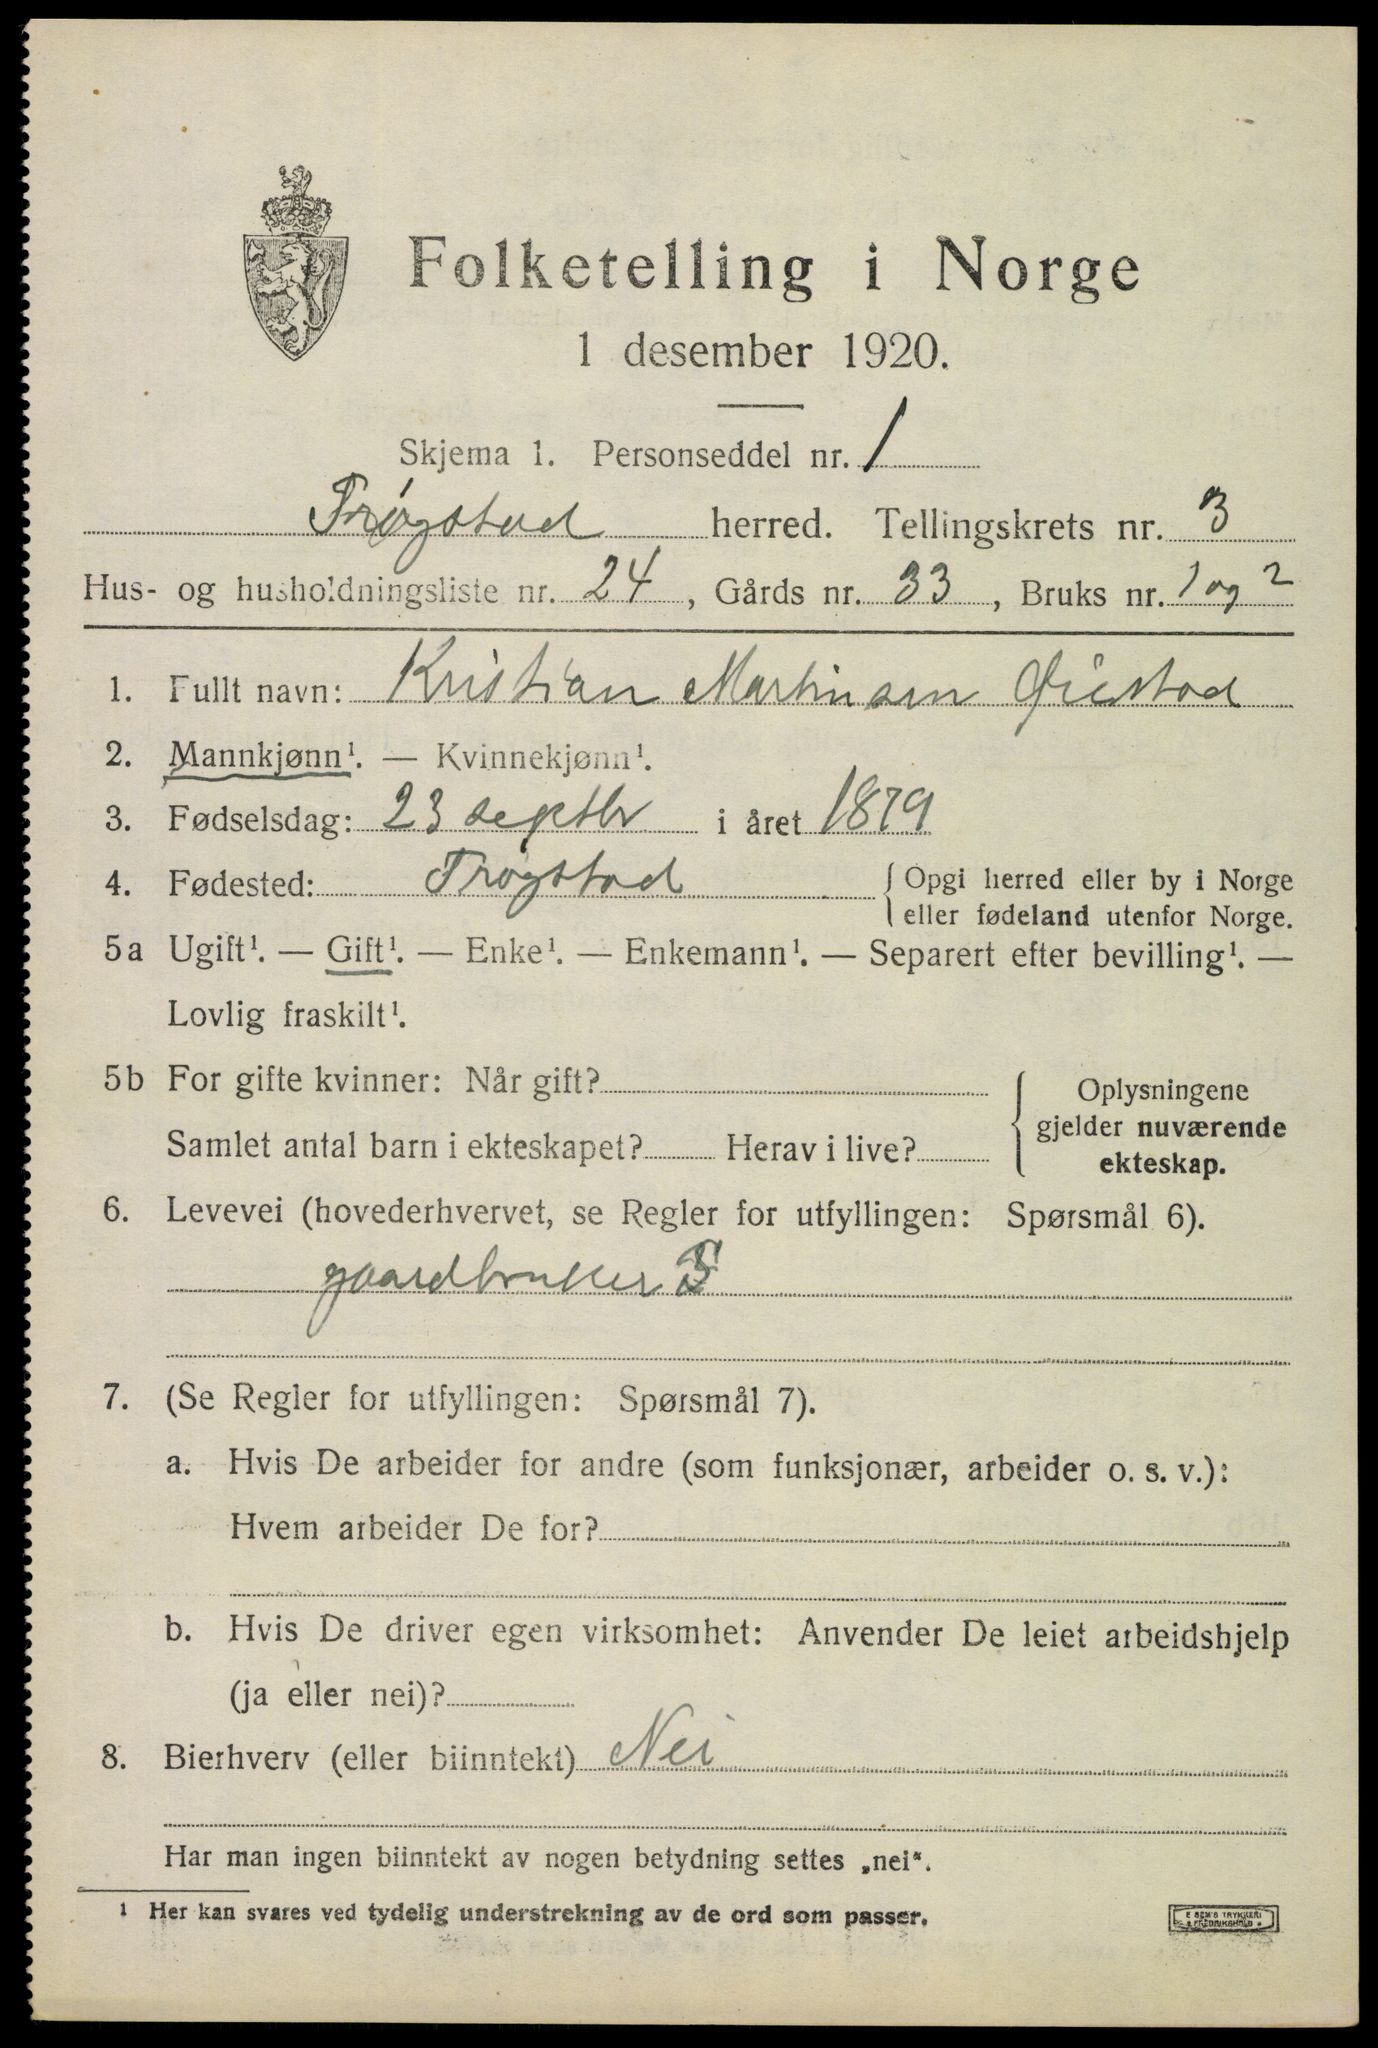 Folketelling i Norge
1 desember 1920.
Skjema 1. Personseddel nr. 1
Trøgstad herred. Tellingskrets nr. 3
Hus- og husholdningsliste nr. 24, Gårds nr. 33, Bruks nr. 1 og 2
1. Fullt navn: Kristian Martinsen Øiestad
2. Mannkjønn¹. — Kvinnekjønn¹.
3. Fødselsdag: 23 septbr i året 1879
4. Fødested: Trøgstad { Opgi herred eller by i Norge
eller fødeland utenfor Norge.
5a Ugift¹. — Gift¹. — Enke¹. — Enkemann¹. — Separert efter bevilling¹. —
Lovlig fraskilt¹.
5b For gifte kvinner: Når gift?
Samlet antal barn i ekteskapet? Herav i live?
Oplysningene
gjelder nuværende
ekteskap.
6. Levevei (hovederhvervet, se Regler for utfyllingen: Spørsmål 6).
gaardbruker S
7. (Se Regler for utfyllingen: Spørsmål 7).
a. Hvis De arbeider for andre (som funksjonær, arbeider o. s. v.):
Hvem arbeider De for?
b. Hvis De driver egen virksomhet: Anvender De leiet arbeidshjelp
(ja eller nei)?
8. Bierhverv (eller biinntekt) Nei
Har man ingen biinntekt av nogen betydning settes „nei“.
1 Her kan svares ved tydelig understrekning av de ord som passer.
E SEM'S TRYKKERI
FREDRIKSHALD